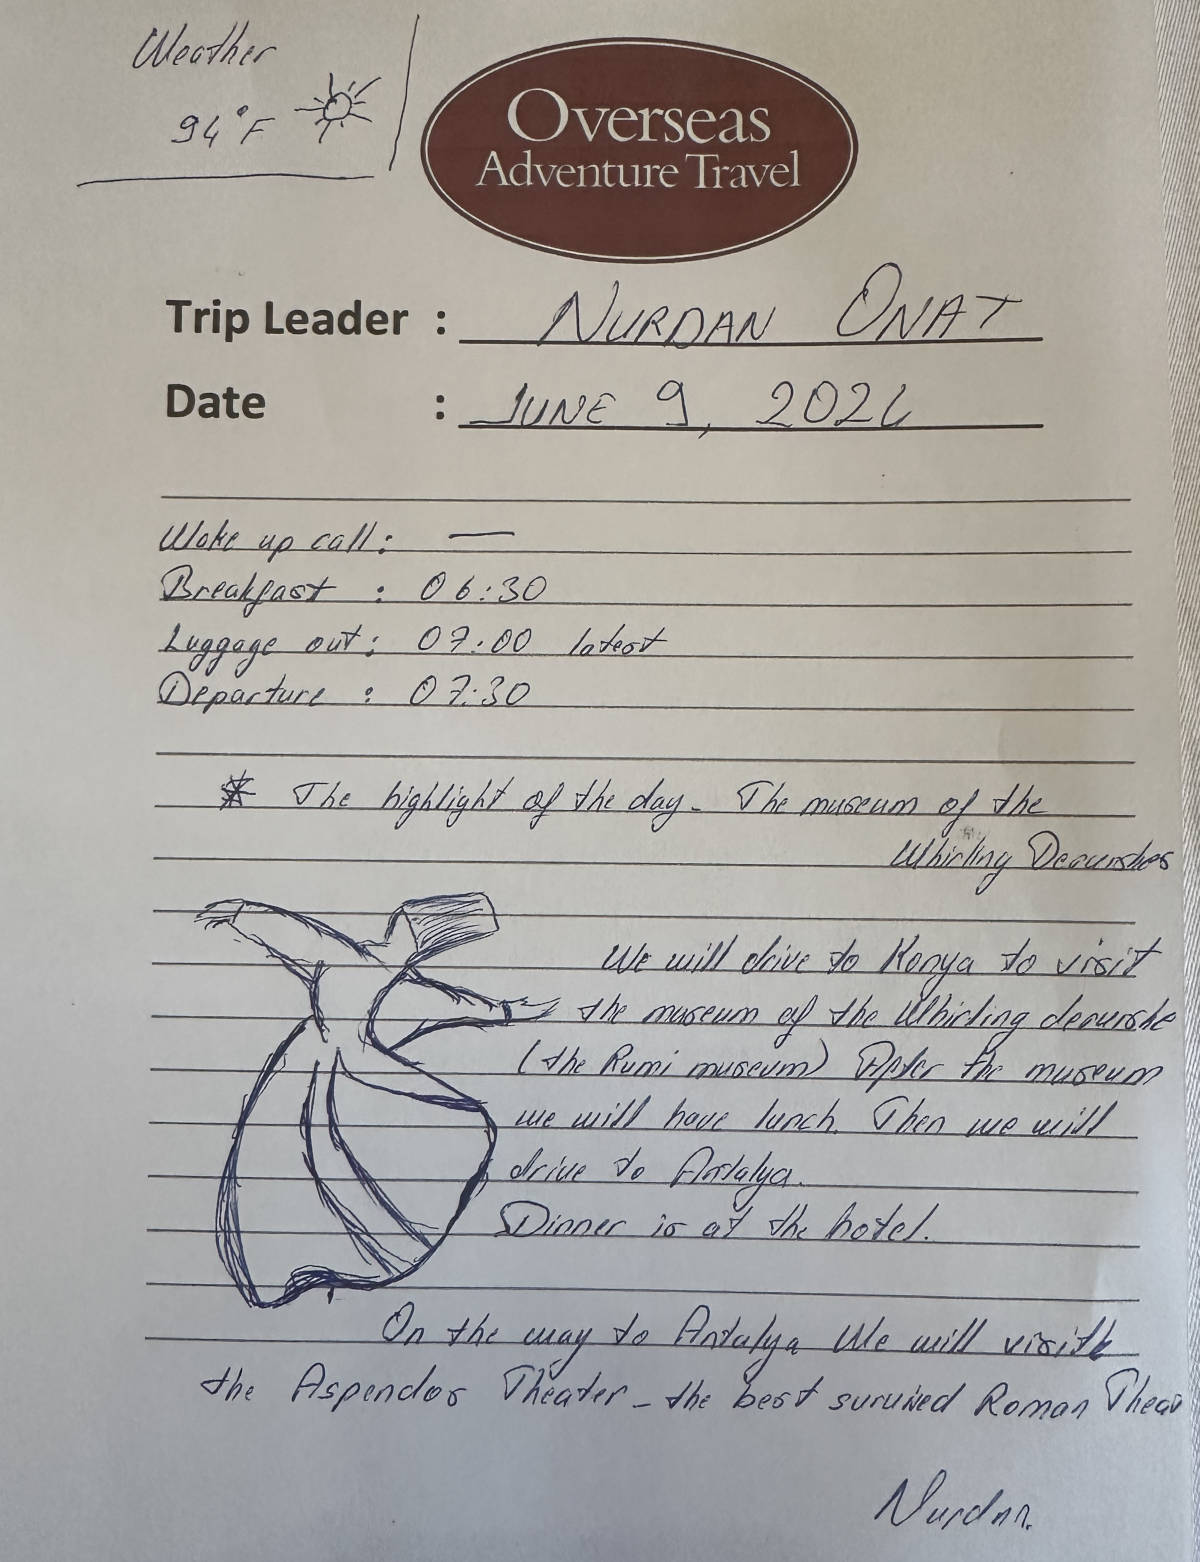 Weather
94°F
Overseas
Adventure Travel
Trip Leader : NURDAN ONAT
Date : JUNE 9, 2024
Wake up call: —
Breakfast : 06:30
Luggage out: 07:00 latest
Departure : 07:30
* The highlight of the day - The museum of the
Whirling Dervishes
We will drive to Konya to visit
the museum of the Whirling dervishe
(the Rumi museum) After the museum
we will have lunch. Then we will
drive to Antalya.
Dinner is at the hotel.
On the way to Antalya We will visit
the Aspendos Theater - the best survived Roman Theat
Nurdan.